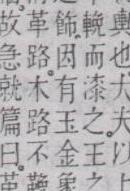 輿也大夫以上
鞔而漆之王之
飾因有玉金象
革路木路不鞔
故急就篇曰革